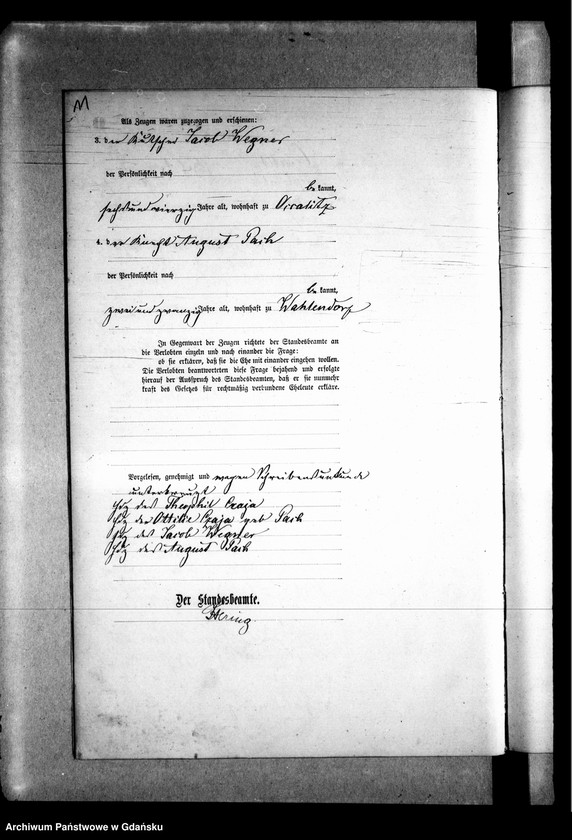 Als Zeugen waren zugezogen und erschienen:
3. der Kutscher Jacob Wegner
der Persönlichkeit nach
be kannt,
sechsundvierzig Jahre alt, wohnhaft zu
4. der Knecht August Paih
der Persönlichkeit nach
be kannt,
zweiundzwanzig Jahre alt, wohnhaft zu Wahlendorf
In Gegenwart der Zeugen richtete der Standesbeamte an
die Verlobten einzeln und nach einander die Frage:
ob sie erklären, daß sie die Ehe mit einander eingehen wollen.
Die Verlobten beantworteten diese Frage bejahend und erfolgte
hierauf der Ausspruch des Standesbeamten, daß er sie nunmehr
kraft des Gesetzes für rechtmäßig verbundene Eheleute erkläre.
Vorgelesen, genehmigt und wegen Schreibensunkunde
unterkreuzt
Hdz des Theophil Czaja
Hdz der Ottilie Czaja geb Paih
Hdz des Jacob Wegner
Hdz des August Paih
Der Standesbeamte.
Hering
Archiwum Państwowe w Gdańsku